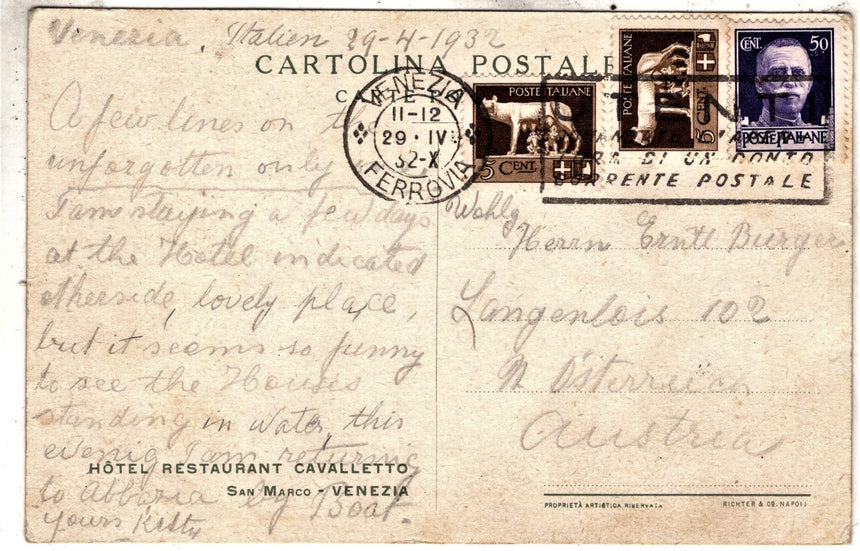 Venezia, Italien 29-4-1932
CARTOLINA POSTALE
VENEZIA
11-12
29·IV
32-X
FERROVIA
POSTE ITALIANE
5 CENT.
POSTE ITALIANE
5 CENT.
CENT. 50
POSTE ITALIANE
DI UN CONTO
CORRENTE POSTALE
A few lines on the
unforgotten only
I am staying a few days
at the Hotel indicated
otherside, lovely place,
but it seems so funny
to see the Houses
standing in water, this
evenig I am returnig
to Abbazia by Boat.
Yours
Herrn Burger
Langenlois 102
N Österreich
Austria
HÔTEL RESTAURANT CAVALLETTO
SAN MARCO - VENEZIA
PROPRIETÀ ARTISTICA RISERVATA
RICHTER & CO. NAPOLI